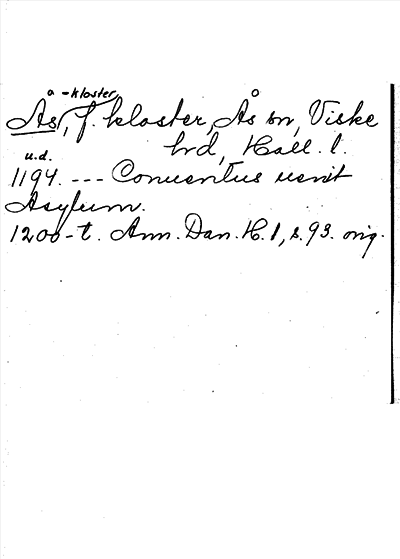 a -kloster
As, f. kloster, Ås sn, Viske
hrd, Hall. l.
u.d.
1194. --- Conuentus uenit
Asylum.
1200-t. Ann. Dan. H. 1, s. 93. orig.